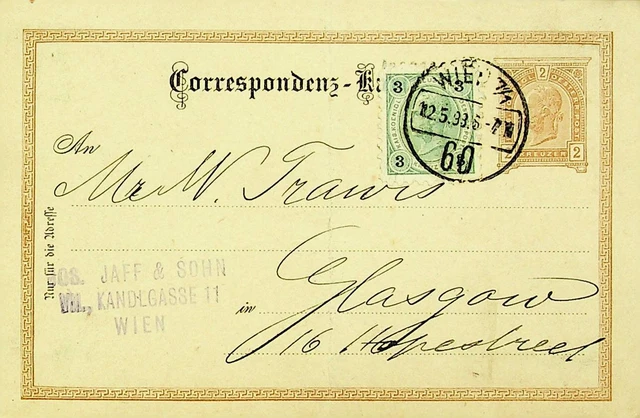 Correspondenz-K
3 3
3
2
KREUZER
2 2
WIEN 7/1
12.5.93.6-7N
60
An
Mr W. Travis
Nur für die Adresse
JOS. JAFF & SOHN
VII., KANDLGASSE 11
WIEN
in Glasgow
16 Hopestreet